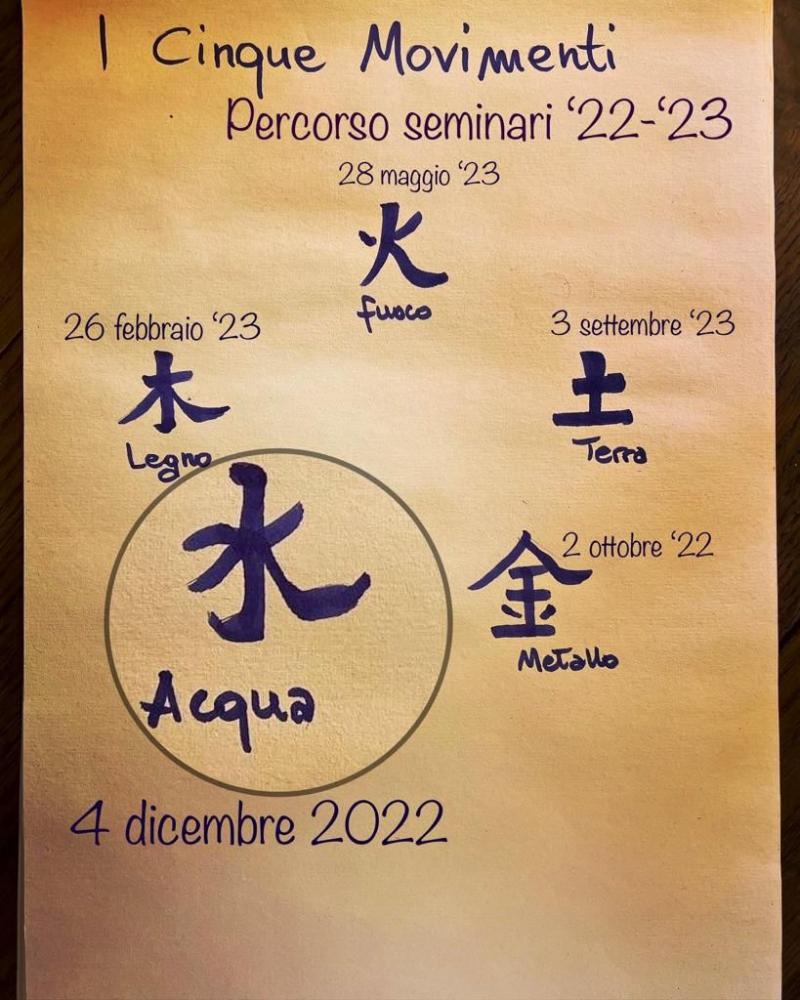 I Cinque Movimenti
Percorso seminari ‘22-‘23
28 maggio ‘23
火
fuoco
26 febbraio ‘23
木
Legno
3 settembre ‘23
土
Terra
水
Acqua
4 dicembre 2022
2 ottobre ‘22
金
Metallo